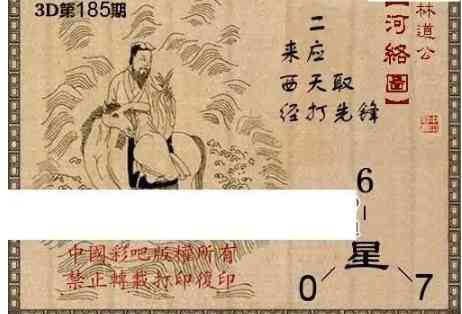 3D第185期
林道公
【河絡圖】
二
来应
西天取
经打先锋
6
星
0 7
中國彩吧版權所有
禁止轉載打印復印